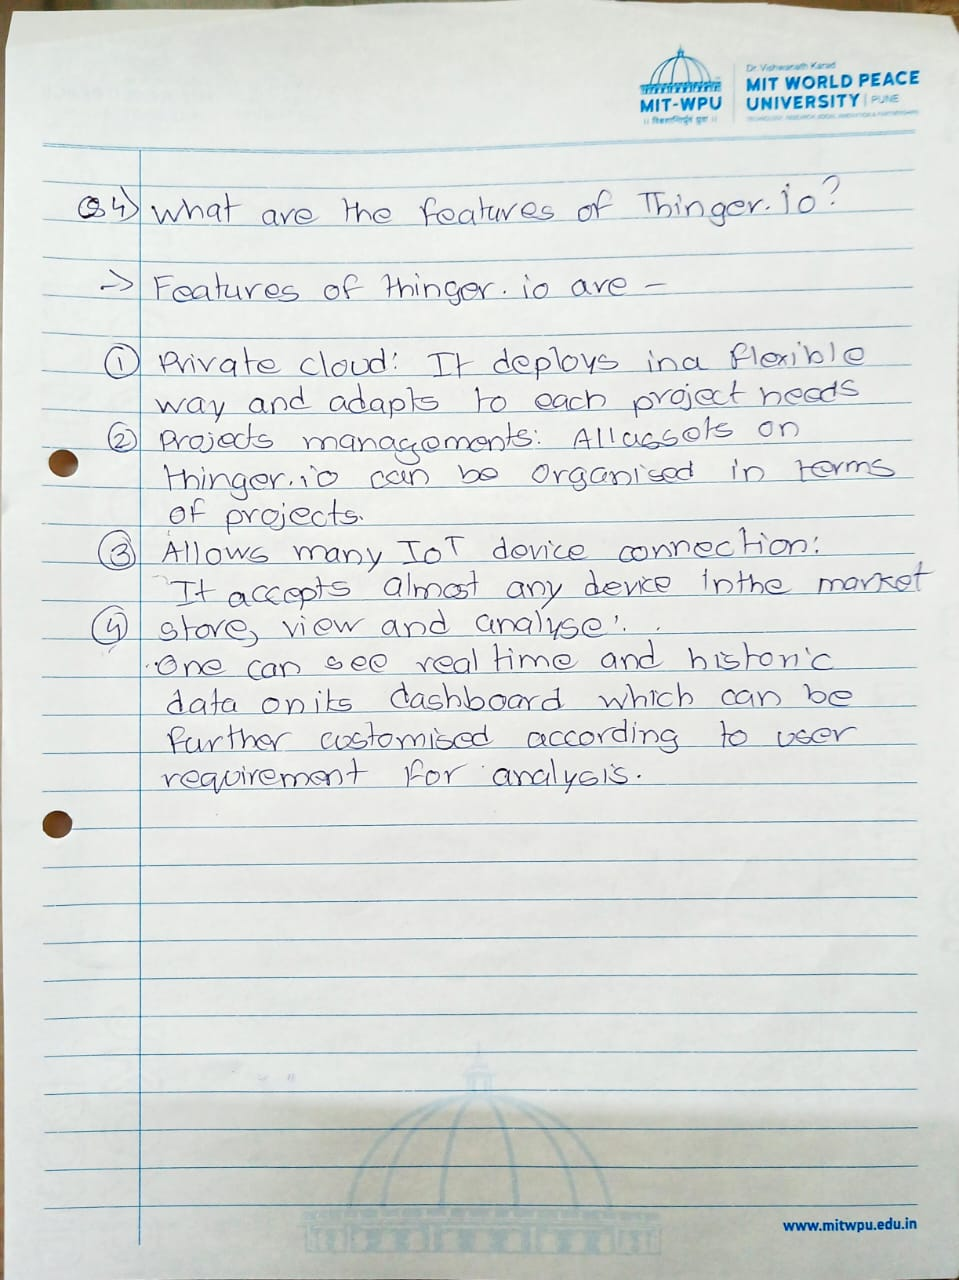 Dr. Vishwanath Karad
MIT WORLD PEACE
UNIVERSITY | PUNE
MIT-WPU
Q4) What are the features of Thinger.io?
-> Features of thinger.io are -
① Private cloud: It deploys in a flexible
way and adapts to each project needs
② Projects managements: All assets on
thinger.io can be organised in terms
of projects.
③ Allows many IoT device connection:
It accepts almost any device in the market
④ store, view and analyse:
One can see real time and historic
data on its dashboard which can be
further customised according to user
requirement for analysis.
www.mitwpu.edu.in